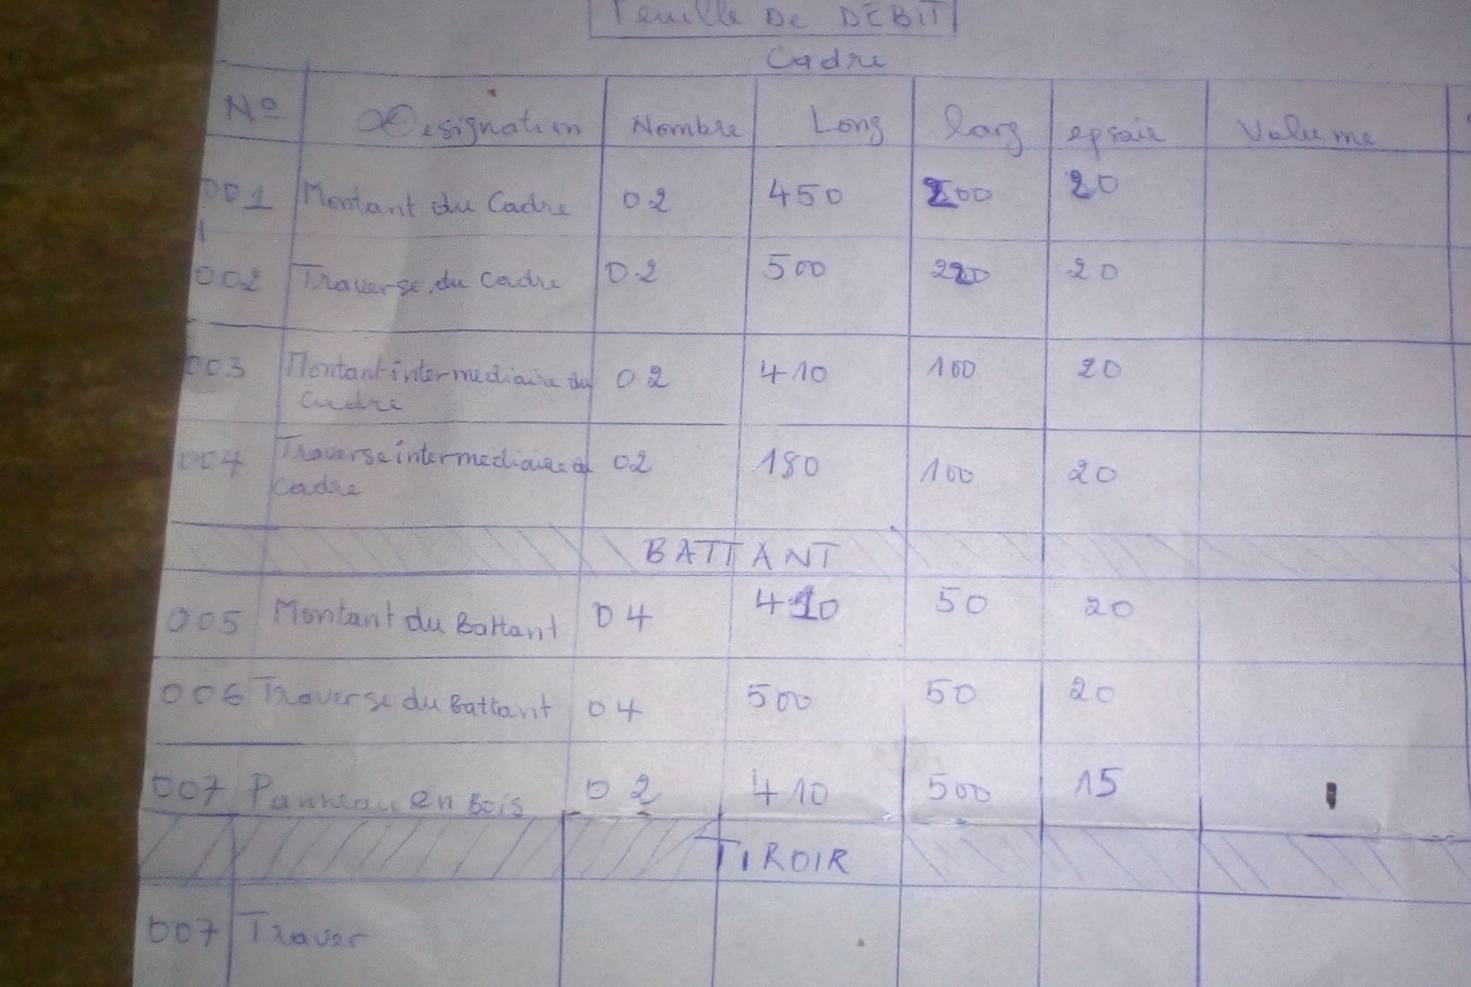 Feuille De DEBIT
Cadre
No Designation Nombre Long larg epsair Volume
001 Montant du Cadre 02 450 200 20
002 Traverse du Cadre 02 500 220 20
003 Montant intermediaire du 02 410 100 20
cadre
004 Traverse intermediaire d 02 180 100 20
cadre
BATTANT
005 Montant du Battant 04 410 50 20
006 Traverse du Battant 04 500 50 20
007 Panneau en Bois 02 410 500 15
TIROIR
007 Traver